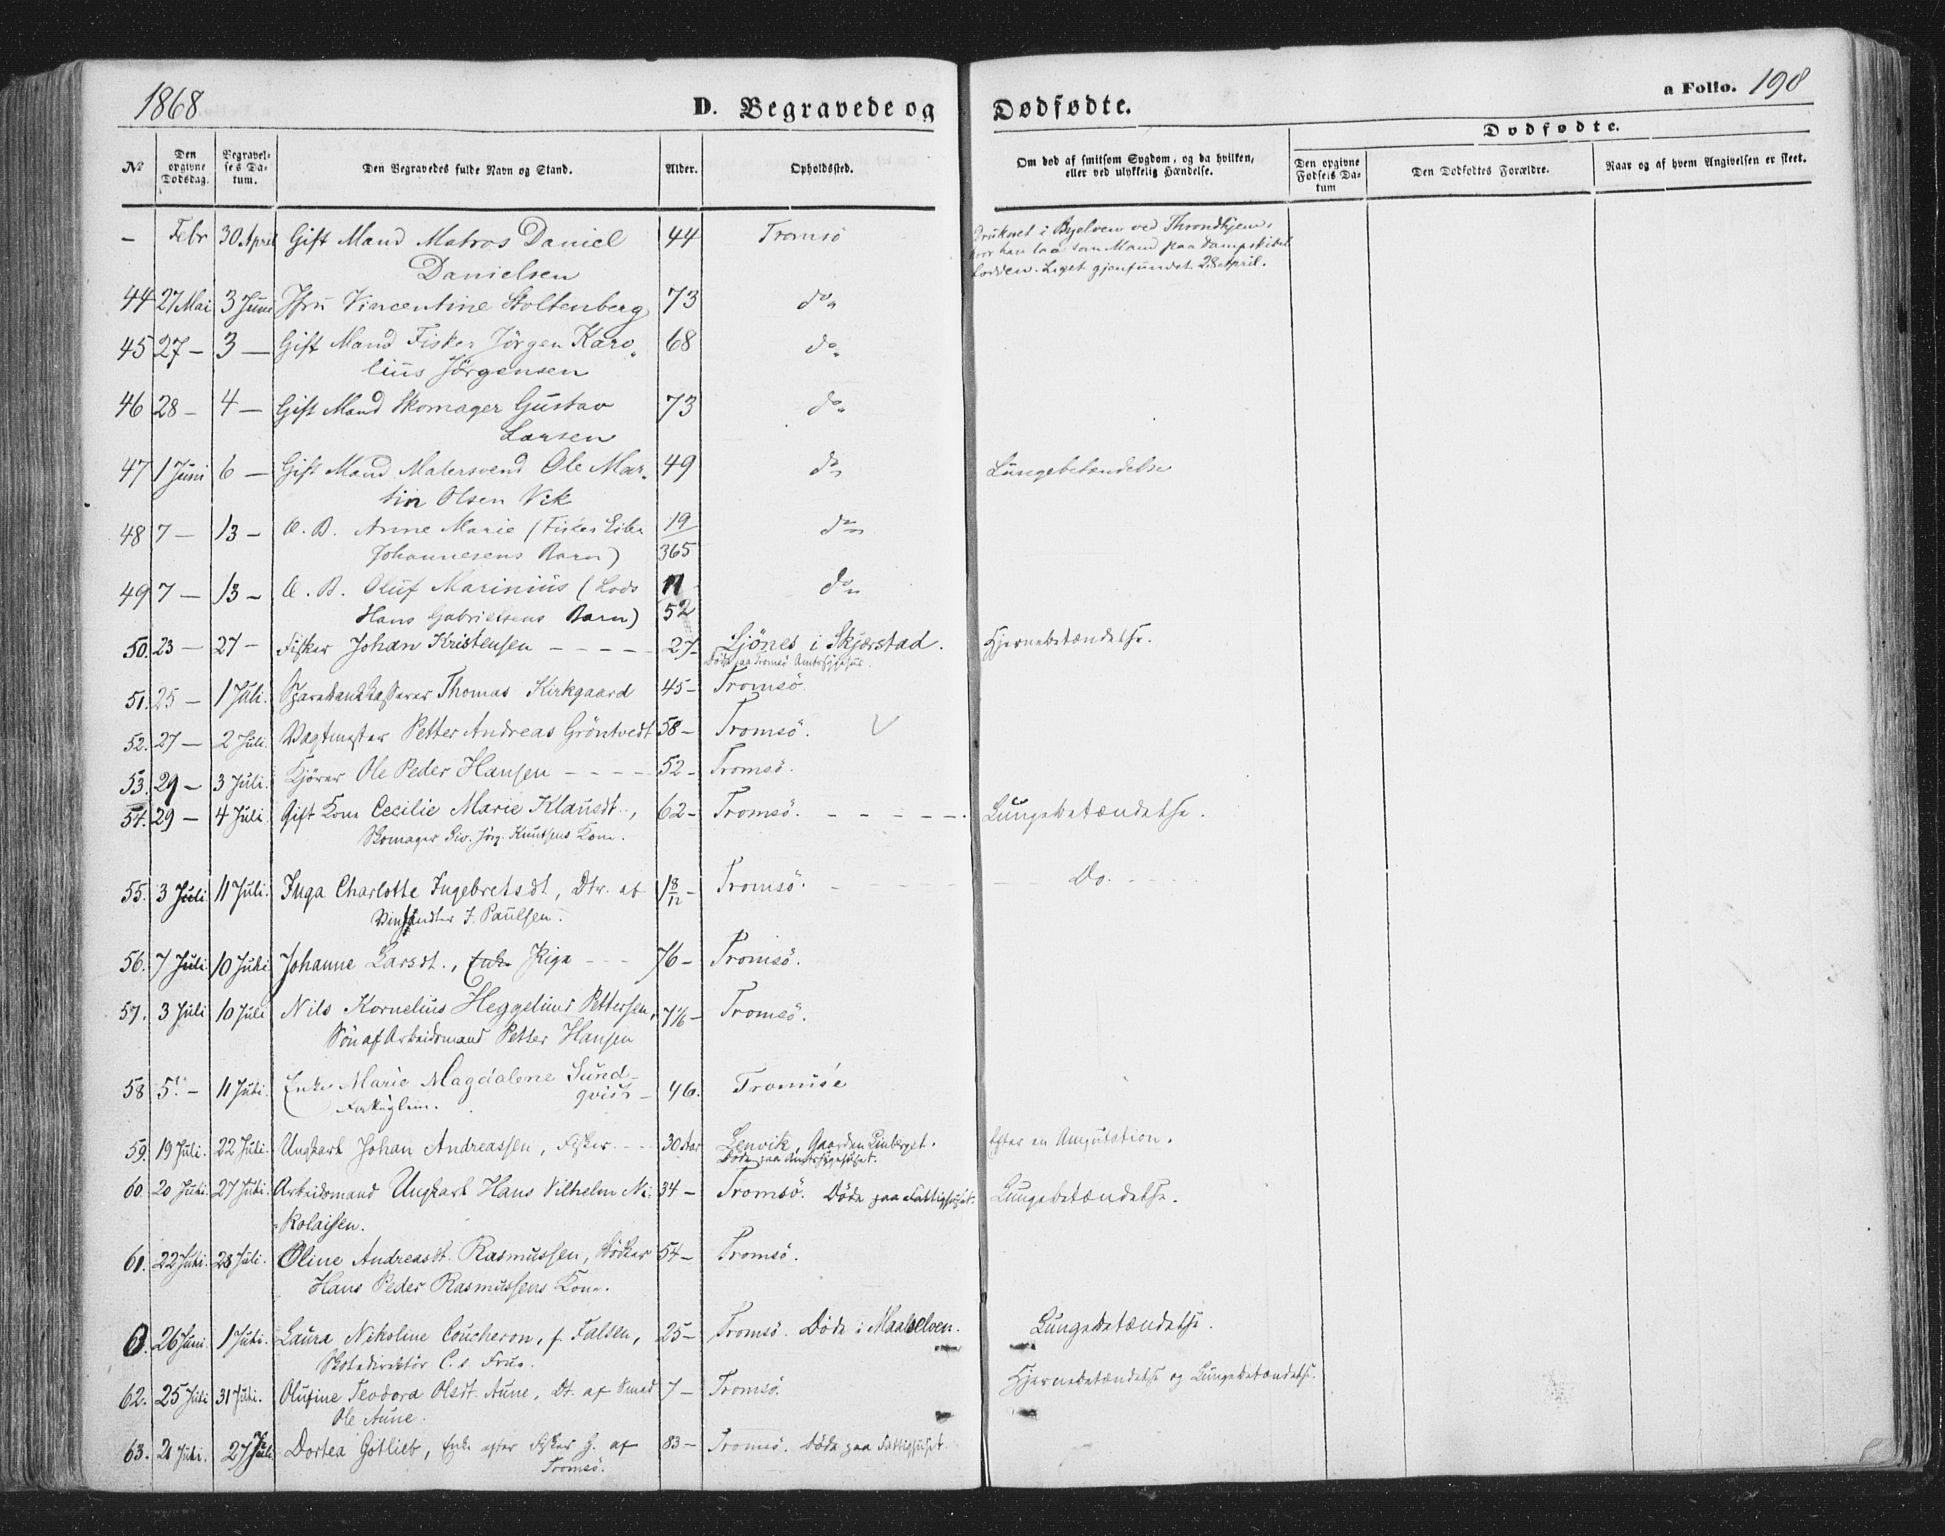 1868
D. Begravede og Dødfødte.
a Folio. 198
Dødfødte.
№
Den opgivne Dødsdag.
Begravelses Datum.
Den Begravedes fulde Navn og Stand.
Alder.
Opholdssted.
Om død af smitsom Sygdom, og da hvilken,
eller ved ulykkelig Hændelse.
Den opgivne Fødsels Datum
Den Dødfødtes Forældre.
Naar og af hvem Angivelsen er skeet.
– Febr 30 April Gift Mand Matros Daniel 44 Tromsø Druknet i Byelven ved Throndhjem,
hvor han laa som Mand paa Dampskibet
Danielsen Lodden. Liget gjenfundet 28 April.
44 27 Mai 3 Juni Jfru Vincentine Stoltenberg 73 do
45 27 – 3 — Gift Mand Fisker Jörgen Karo- 68 do
lius Jørgensen
46 28 – 4 — Gift Mand Skomager Gustav 73 do
Larsen
47 1 Juni 6 — Gift Mand Malersvend Ole Mar- 49 do Lungebetændelse
tin Olsen Vik
48 7 — 13 – U. B. Anne Marie (Fisker 19 do
Johannesens Barn) 365
49 7 — 13 – U. B. Oluf Marinius (Lods 11 do
Hans Gabrielsens Barn) 52
50. 23 — 27 – Fisker Johan Kristensen – – – – 27 – Ljönes i Skjerstad. Hjernebetændelse.
Döde paa Tromsö Amtssygehus.
51. 25 – 1 Juli. Sparebankkasserer Thomas Kirkgaard 45 – Tromsö.
52. 27 — 2 Juli. Vagtmester Petter Andreas Gröntvedt 58 – Tromsö.
53. 29 – 3 Juli. Kjörer Ole Peder Hansen – – – – 52 – Tromsö.
54. 29 – 4 Juli. Gift Kone Cecilie Marie Klausdt., 62 – Tromsö. – – – – – Lungebetændelse.
Skomager Siv. Jörg. Knutsens Kone.
55. 3 Juli. 11 Juli. Inga Charlotte Ingebretsdt, Dtr. af 1 8/12 – Tromsö. – – – – – Do. – – –
J. Paulsen.
56. 7 Juli. 10 Juli Johanne Larsdt., Enke Pige – – – 76 – Tromsö.
57. 3 Juli 10 Juli Nils Kornelius Heggelund Pettersen, Tromsö.
Sön af Arbeidsmand Petter Hansen
58 5. – 11 Juli. Enke Marie Magdalene Sund- 46. Tromsöe
qvist
59. 19 Juli. 22 Juli. Ungkarl Johan Andreassen, Fisker. – – 30 Aar Lenvik, Gaarden Efter en Amputation.
Döde paa Amtssygehuset.
60. 20 Juli. 27 Juli. Arbeidsmand Ungkarl Hans Vilhelm Ni- 34 – Tromsö. Döde paa Fattighuset. Lungebetændelse.
kolaisen.
61. 22 Juli. 28 Juli. Oline Andreasdt. Rasmussen, Bödker 54 – Tromsö.
Hans Peder Rasmussens Kone.
26 Juni. 1 Juli. Laura Nikoline Coucheron, f. Falsen, 25 – Tromsö. Döde i Maalselven. Lungebetændelse.
C.s Frue.
62. 25 Juli 31 Juli. Olufine Teodora Olsdt. Aune, Dt. af Smed 7 – Tromsö. Hjernebetændelse og Lungebetændelse.
Ole Aune.
63. 21 Juli. 27 Juli Dortea Gotlieb, Enke efter Fisker G. af 83 – Tromsö. Döde paa Fattighuset.
Tromsö.